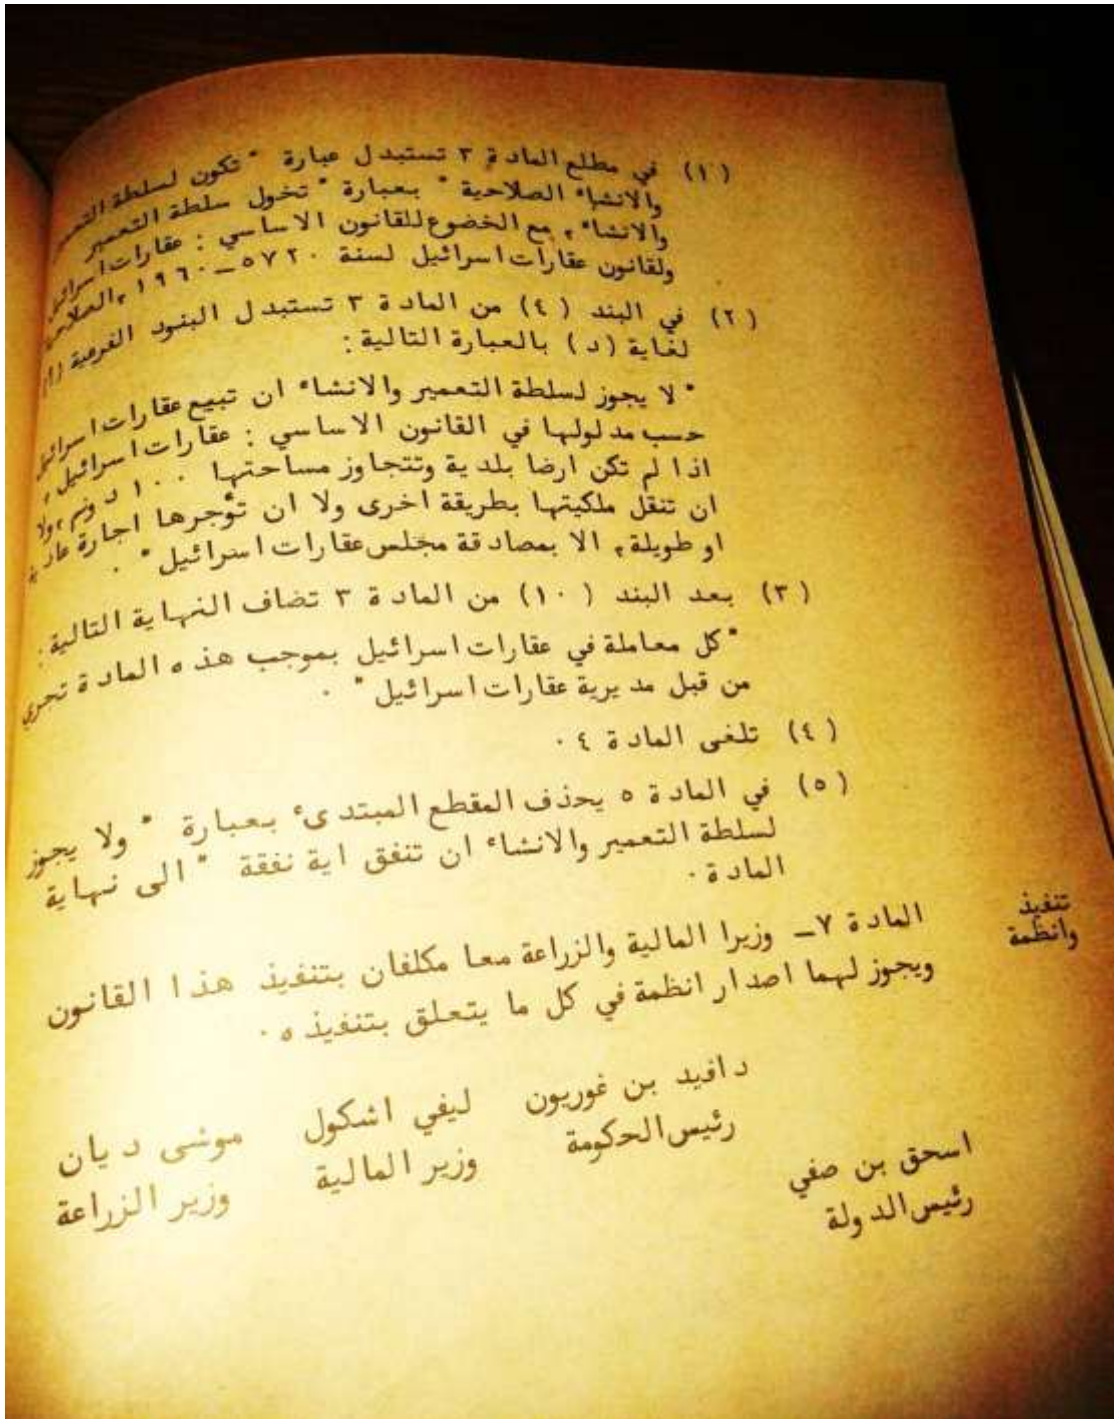 (١) في مطلع المادة ٣ تستبدل عبارة " تكون لسلطة
والانشاء الصلاحية " بعبارة " تخول سلطة التعمير
والانشاء ، مع الخضوع للقانون الاساسي : عقارات اسرائيل
ولقانون عقارات اسرائيل لسنة ٥٧٢٠ـ١٩٦٠ ،
(٢) في البند (٤) من المادة ٣ تستبدل البنود الفرعية (أ)
لغاية (د) بالعبارة التالية :
" لا يجوز لسلطة التعمير والانشاء ان تبيع عقارات اسرائيل
حسب مدلولها في القانون الاساسي : عقارات اسرائيل ،
اذا لم تكن ارضا بلدية وتتجاوز مساحتها ١٠٠ دونم ، ولا
ان تنقل ملكيتها بطريقة اخرى ولا ان تؤجرها اجارة عادية
او طويلة ، الا بمصادقة مجلس عقارات اسرائيل " .
(٣) بعد البند (١٠) من المادة ٣ تضاف النهاية التالية :
" كل معاملة في عقارات اسرائيل بموجب هذه المادة تجري
من قبل مديرية عقارات اسرائيل " .
(٤) تلغى المادة ٤ .
(٥) في المادة ٥ يحذف المقطع المبتدىء بعبارة " ولا يجوز
لسلطة التعمير والانشاء ان تنفق اية نفقة " الى نهاية
المادة .
تنفيذ
وانظمة
المادة ٧ـ وزيرا المالية والزراعة معا مكلفان بتنفيذ هذا القانون
ويجوز لهما اصدار انظمة في كل ما يتعلق بتنفيذه .
دافيد بن غوريون ليفي اشكول موشى ديان
رئيس الحكومة وزير المالية وزير الزراعة
اسحق بن صفي
رئيس الدولة